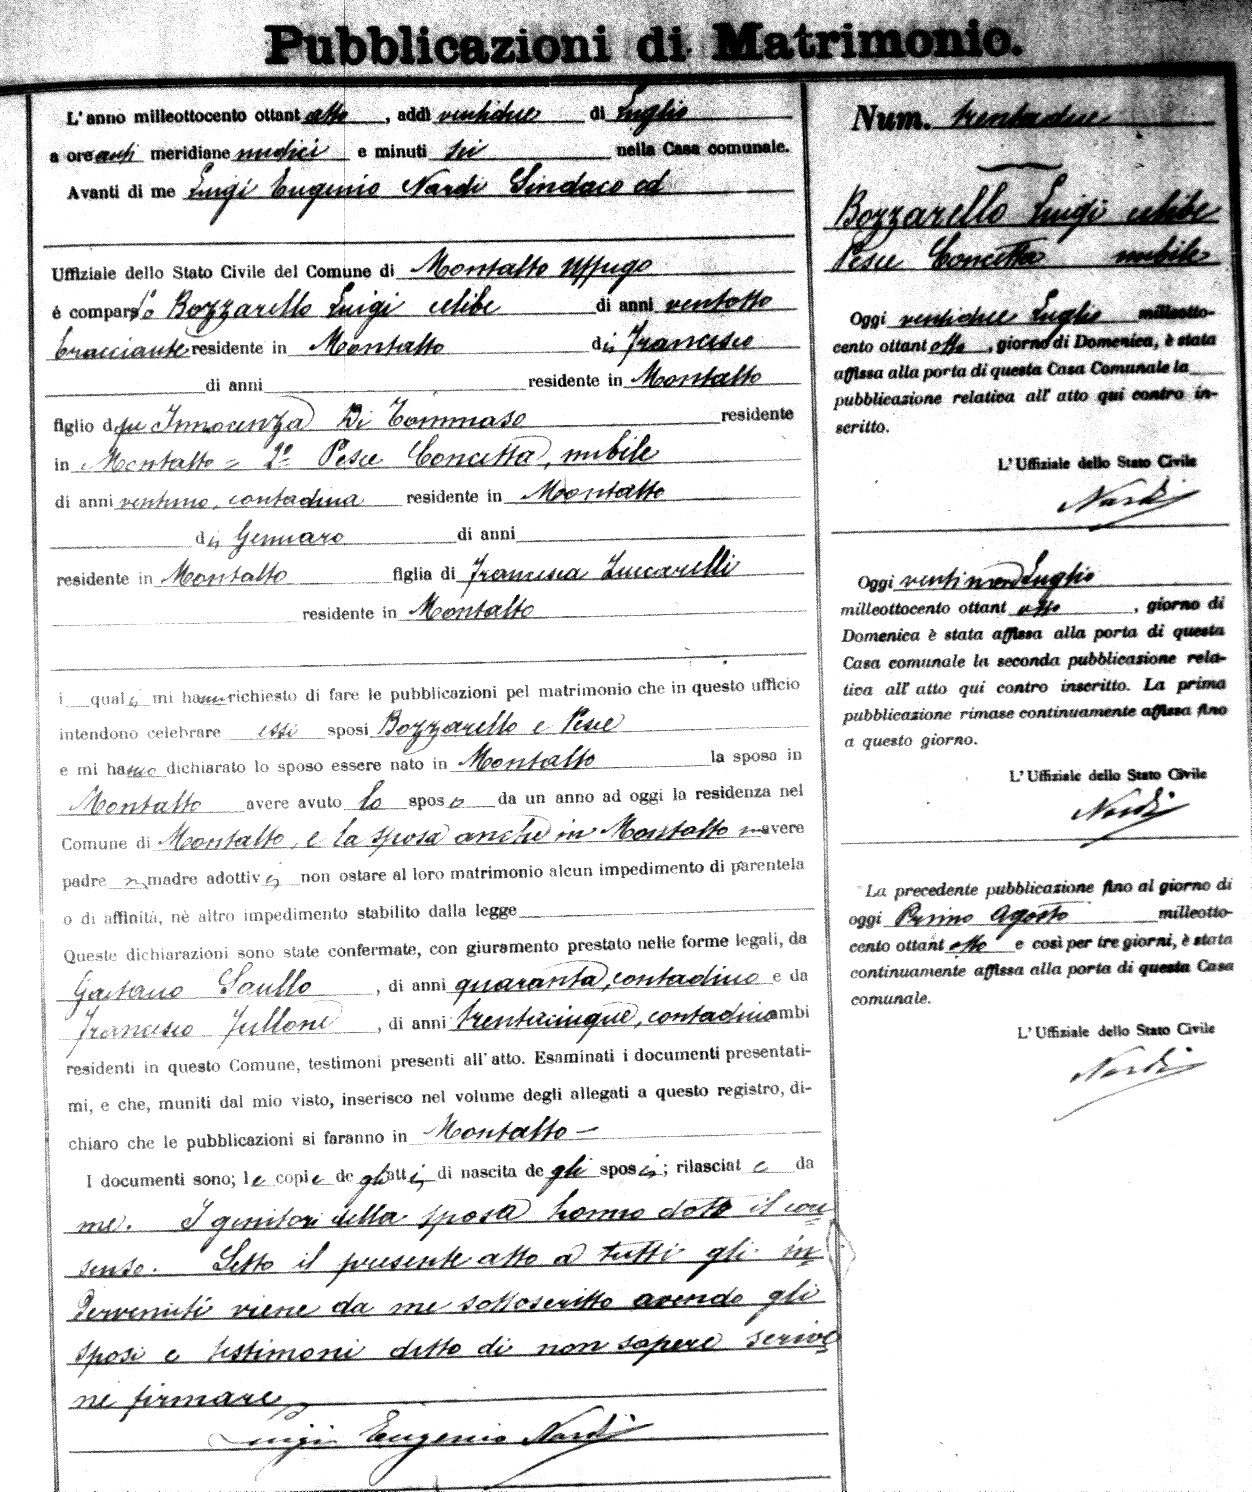 Pubblicazioni di Matrimonio.
L'anno milleottocento ottantotto, addì ventidue di Luglio
a ore anti meridiane undici e minuti sei nella Casa comunale.
Avanti di me Luigi Eugenio Nardi Sindaco ed
Uffiziale dello Stato Civile del Comune di Montalto Uffugo
è comparso Bozzarello Luigi celibe di anni ventotto
bracciante residente in Montalto di Francesco
di anni residente in Montalto
figlio di fu Innocenza Di Tommaso residente
in Montalto = 2º Pesce Concetta, nubile
di anni ventuno, contadina residente in Montalto
di Gennaro di anni
residente in Montalto figlia di Francesca Zuccarelli
residente in Montalto
i quali mi hanno richiesto di fare le pubblicazioni pel matrimonio che in questo ufficio
intendono celebrare essi sposi Bozzarello e Pesce
e mi hanno dichiarato lo sposo essere nato in Montalto la sposa in
Montalto avere avuto lo sposo da un anno ad oggi la residenza nel
Comune di Montalto, e la sposa anche in Montalto avere
padre madre adottivi non ostare al loro matrimonio alcun impedimento di parentela
o di affinità, nè altro impedimento stabilito dalla legge
Queste dichiarazioni sono state confermate, con giuramento prestato nelle forme legali, da
Gaetano Saullo, di anni quaranta, contadino e da
Francesco, di anni trentacinque, contadino ambi
residenti in questo Comune, testimoni presenti all'atto. Esaminati i documenti presentati-
mi, e che, muniti dal mio visto, inserisco nel volume degli allegati a questo registro, di-
chiaro che le pubblicazioni si faranno in Montalto —
I documenti sono; le copie de gli atti di nascita de gli sposi; rilasciate da
me. I genitori della sposa hanno dato il con=
senso. Letto il presente atto a tutti gli in=
tervenuti viene da me sottoscritto avendo gli
sposi e testimoni detto di non sapere scrive
nè firmare
Luigi Eugenio Nardi
Num. trentadue
Bozzarello Luigi celibe
Pesce Concetta nubile
Oggi ventidue Luglio milleotto-
cento ottantotto, giorno di Domenica, è stata
affissa alla porta di questa Casa Comunale la
pubblicazione relativa all'atto qui contro in-
scritto.
L'Uffiziale dello Stato Civile
Nardi
Oggi ventinove Luglio
milleottocento ottantotto, giorno di
Domenica è stata affissa alla porta di questa
Casa comunale la seconda pubblicazione rela-
tiva all'atto qui contro inscritto. La prima
pubblicazione rimase continuamente affissa fino
a questo giorno.
L'Uffiziale dello Stato Civile
Nardi
La precedente pubblicazione fino al giorno di
oggi Primo Agosto milleotto-
cento ottantotto e così per tre giorni, è stata
continuamente affissa alla porta di questa Casa
comunale.
L'Uffiziale dello Stato Civile
Nardi